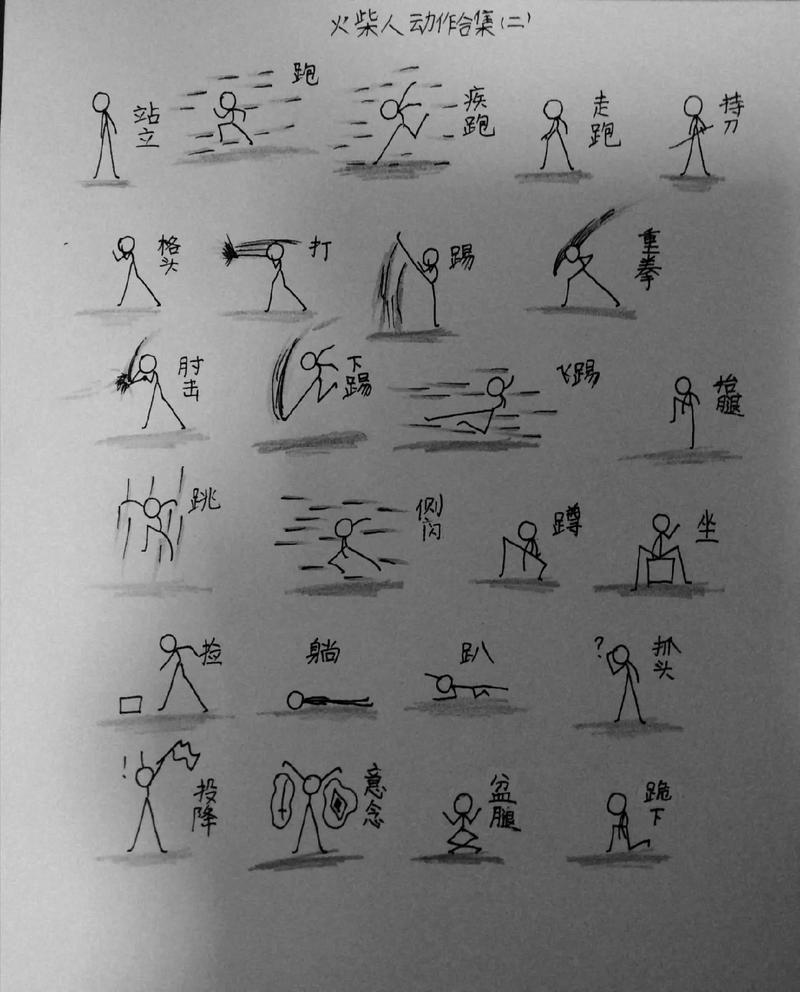 火柴人动作合集(二)
站立
跑
疾跑
走跑
持刀
格头
打
踢
重拳
肘击
下踢
飞踢
抬腿
跳
侧闪
蹲
坐
捡
躺
趴
?
抓头
!
投降
意念
盆腿
跪下